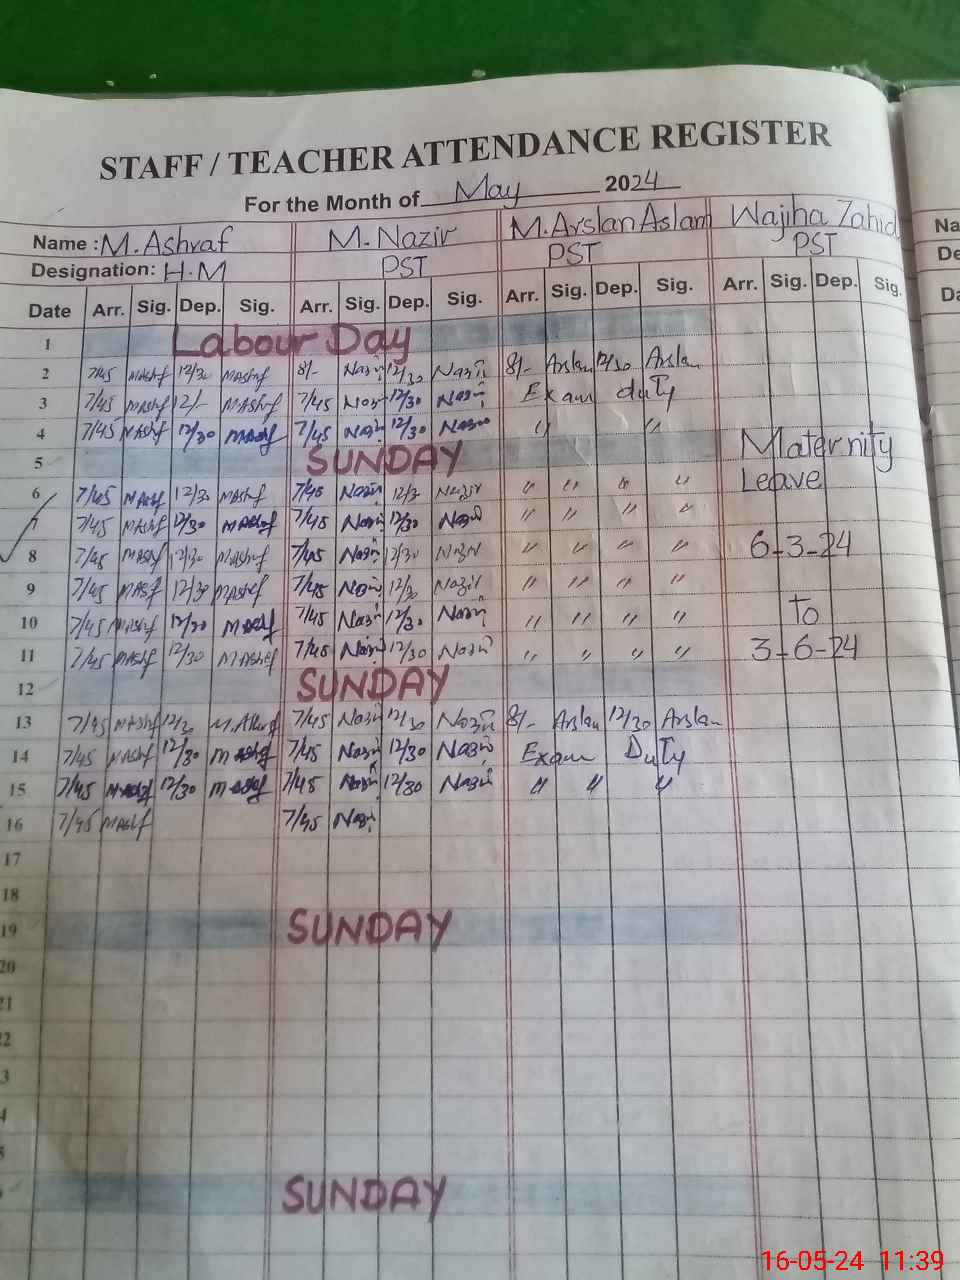 STAFF / TEACHER ATTENDANCE REGISTER
For the Month of May 2024
Name : M. Ashraf M. Nazir M. Arslan Aslam Wajiha Zahid Na
Designation: H.M PST PST PST De
Date Arr. Sig. Dep. Sig. Arr. Sig. Dep. Sig. Arr. Sig. Dep. Sig. Arr. Sig. Dep. Sig. Da
1 Labour Day
2 7/45 MAshf 12/30 MAshrf 8/- Nazir 12/30 Nazir 8/- Arslan 12/30 Arslan
3 7/45 MAshrf 12/- MAshrf 7/45 Nazir 12/30 Nazir Exam duty
4 7/45 MAshrf 12/30 MAshf 7/45 Nazir 12/30 Nazir " "
5 SUNDAY Maternity
6 7/45 MAshf 12/30 MAshrf 7/45 Nazir 12/3 Nazir " " " " Leave
7 7/45 MAshrf 12/30 MAshrf 7/45 Nazir 12/30 Nazir " " " "
8 7/45 MAshf 12/30 MAshraf 7/45 Nazir 12/30 Nazir " " " " 6-3-24
9 7/45 MAShf 12/30 MAshef 7/45 Nazir 12/30 Nazir " " " "
10 7/45 MAshrf 12/30 MAshrf 7/45 Nazir 12/30 Nazir " " " " To
11 7/45 MAshf 12/30 MAshef 7/45 Nazir 12/30 Nazir " " " " 3-6-24
12 SUNDAY
13 7/45 MAshf 12/30 M.Ashrf 7/45 Nazir 12/30 Nazir 8/- Arslan 12/30 Arslan
14 7/45 MAshf 12/30 MAshf 7/45 Nazir 12/30 Nazir Exam Duty
15 7/45 MAshf 12/30 MAshf 7/45 Nazir 12/30 Nazir " " "
16 7/45 MAshf 7/45 Nazir
17
18
19 SUNDAY
20
21
2
3
4
SUNDAY
16-05-24 11:39